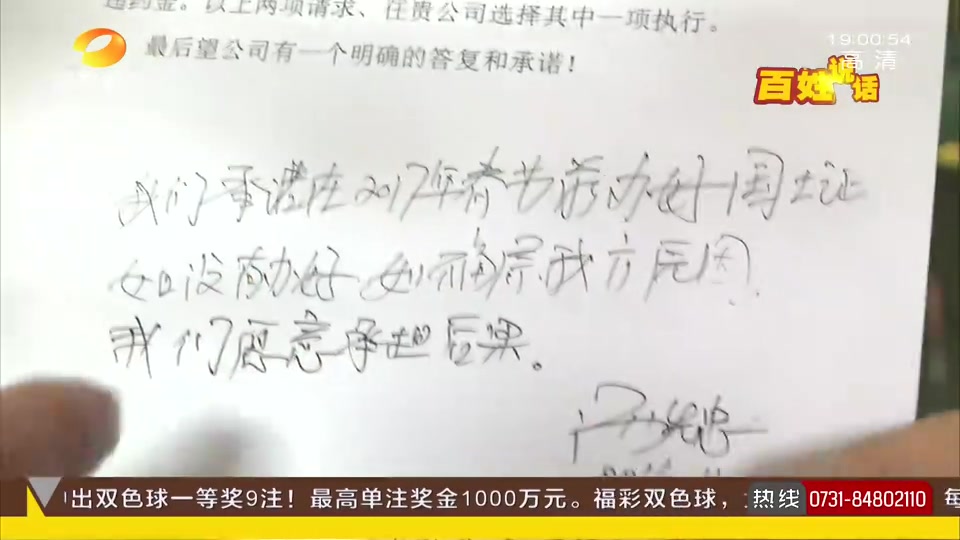 违约金。以上两项请求、任贵公司选择其中一项执行。
最后望公司有一个明确的答复和承诺！
19:00:54
高清
百姓说话
我们承诺在2017年春节前办好国土证
如没有办好,如不确属我方原因
我们愿意承担后果。
出双色球一等奖9注！最高单注奖金1000万元。福彩双色球，
热线 0731-84802110
每